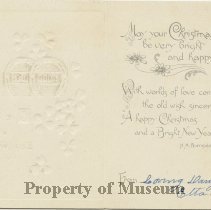 May your Christmas
be very bright
and happy
With worlds of love com
the old wish sincer
A happy Christmas
and a Bright New Year
From Loving
Property of Museum